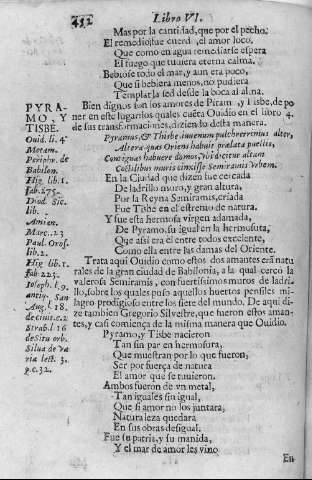 452
Libro VI.
Mas por la cantidad, que por el pecho.
El remedio fue cuerd, el amor loco,
Que como en agua remediarse espera
El fuego que tuuiera eterna calma.
Bebiose todo el mar, y aun era poco,
Que si bebiera menos, no pudiera
Templar la sed desde la boca al alma.
PYRA-
MO, Y
TISBE.
Ouid. li. 4
Metam.
Periphr. de
Babilon.
Hig. lib. 1.
fab. 275.
Diod. Sic.
lib.
Amien.
Marc. 23
Paul. Oros.
lib. 2.
Hig. lib. 1.
fab 223.
Ioseph. l. 9.
antiq. San
Aug. l. 18.
de ciuit. c. 2
Strab. l 16
de situ orb.
Silua de va
ria lect. 3.
p. c. 32.
Bien dignos son los amores de Piram, y Tisbe, de po
ner en este lugar los quales cuēta Ouidio en el libro 4.
de sus transformaciones, diziendo desta manera.
Pyramus, & Thisbe iuuenum pulcherrimus alter,
Altera quas Oriens habuit prælata puellis,
Contiguas habuere domos, vbi dicitur altam
Coctilibus muris cinxisse Semiramis Vrbem.
En la Ciudad que dizen fue cercada
De ladrillo muro, y gran altura,
Por la Reyna Samiramis, criada
Fue Tisbe en el estremo de natura.
Y fue esta hermosa virgen adamada,
De Pyramo, su igual en la hermosura,
Que assi era el entre todos excelente,
Como ella entre las damas del Oriente.
Trata aqui Ouidio como estos dos amantes erā natu
rales de la gran ciudad de Babilonia, a la qual cercò la
valerosa Semiramis, con fuertissimos muros de ladri-
llo, sobre los quales puso aquellos huertos pensiles mi-
lagro prodigioso entre los siete del mundo. De aqui di-
ze tambien Gregorio Siluestre, que fueron estos aman-
tes, y casi comiença de la misma manera que Ouidio.
Pyramo, y Tisbe nacieron
Tan sin par en hermosura,
Que muestran por lo que fueron,
Ser por fuerça de natura
El amor que se tuuieron.
Ambos fueron de vn metal,
Tan iguales sin igual,
Que si amor no los juntara,
Naturaleza quedara
En sus obras desigual.
Fue su patria, y su manida,
Y el mar de amor les vino
En